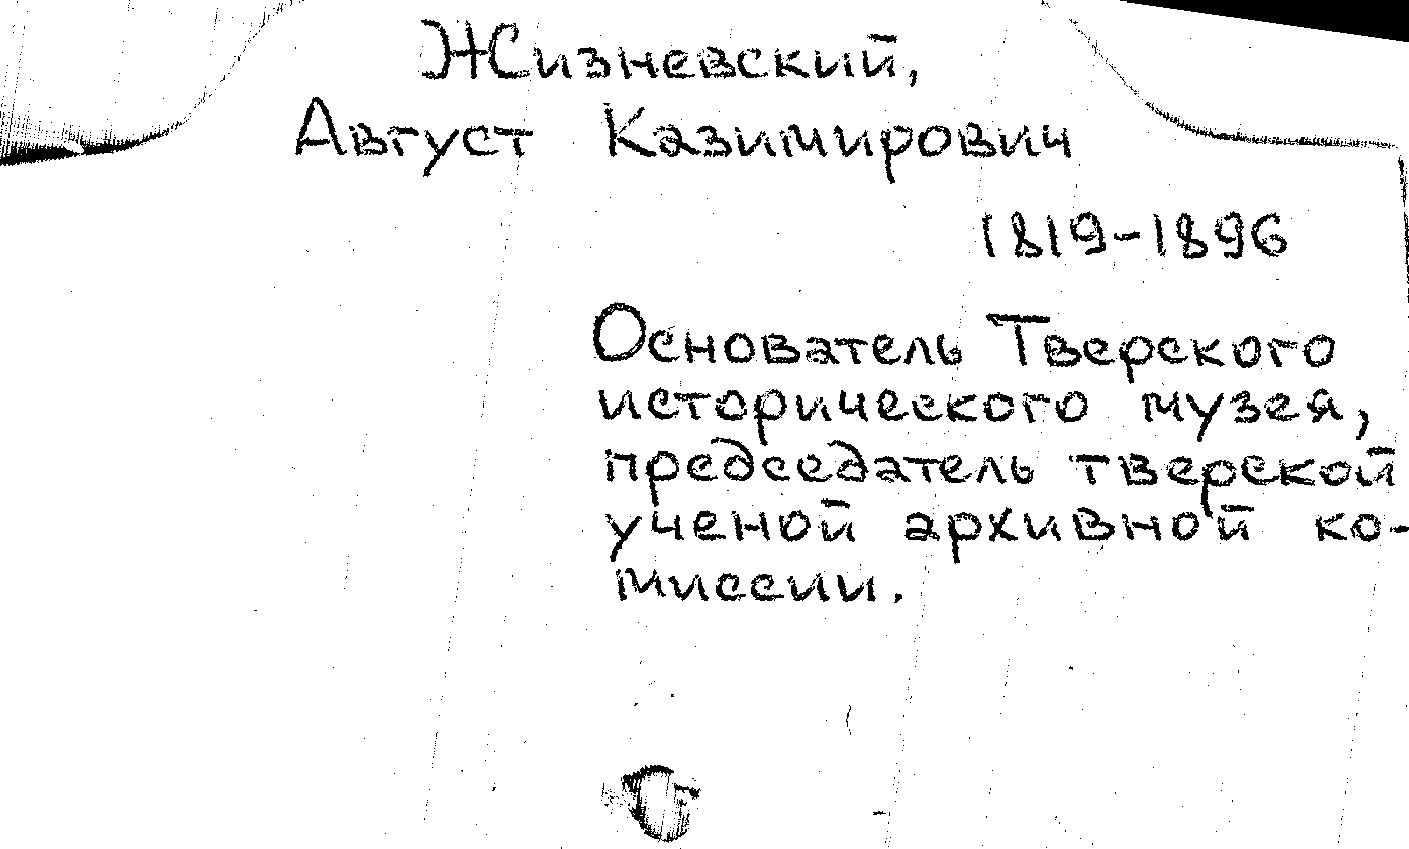 Жизневский,
Август Казимирович
1819-1896
Основатель Тверского
исторического музея,
председатель тверской
ученой архивной ко-
миссии.